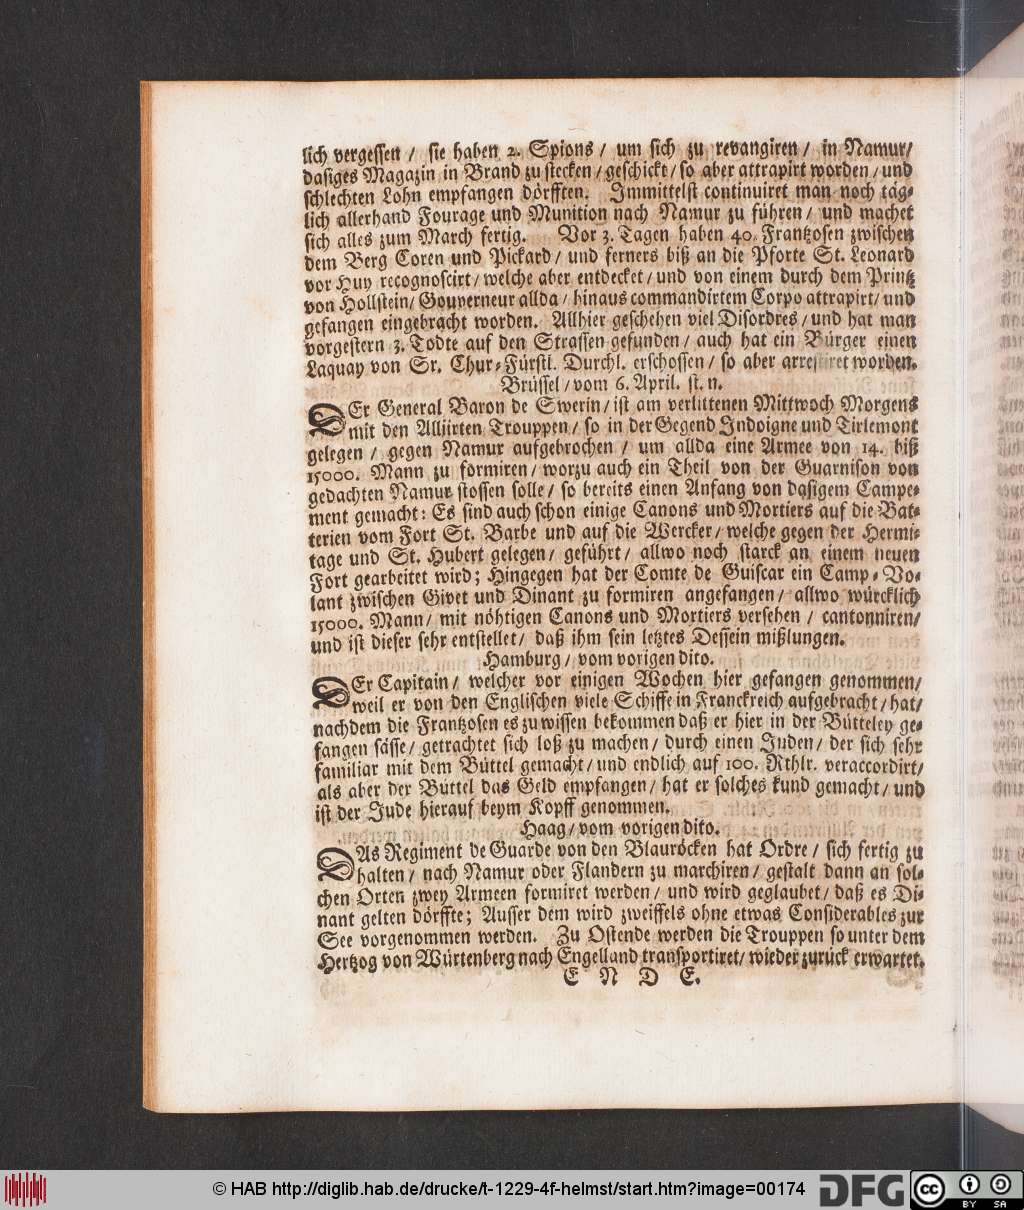 lich vergessen / sie haben 2. Spions / um sich zu revangiren / in Namur/
dasiges Magazin in Brand zu stecken / geschickt / so aber attrapirt worden / und
schlechten Lohn empfangen dörfften. Immittelst continuiret man noch täg-
lich allerhand Fourage und Munition nach Namur zu führen / und machet
sich alles zum March fertig. Vor 3. Tagen haben 40. Frantzosen zwischen
dem Berg Coren und Pickard / und ferners biß an die Pforte St. Leonard
vor Huy recognoscirt / welche aber entdecket / und von einem durch dem Printz
von Hollstein / Gouverneur allda / hinaus commandirtem Corpo attrapirt / und
gefangen eingebracht worden. Allhier geschehen viel Disordres / und hat man
vorgestern 3. Todte auf den Strassen gefunden / auch hat ein Bürger einen
Laquay von Sr. Chur-Fürstl. Durchl. erschossen / so aber arrestiret worden.
Brüssel / vom 6. April. st. n.
DEr General Baron de Swerin / ist am verlittenen Mittwoch Morgens
mit den Alljirten Trouppen / so in der Gegend Indoigne und Tirlemont
gelegen / gegen Namur aufgebrochen / um allda eine Armee von 14. biß
15000. Mann zu formiren / worzu auch ein Theil von der Guarnison von
gedachten Namur stossen solle / so bereits einen Anfang von dasigem Campe-
ment gemacht: Es sind auch schon einige Canons und Mortiers auf die Bat-
terien vom Fort St. Barbe und auf die Wercker / welche gegen der Hermi-
tage und St. Hubert gelegen / geführt / allwo noch starck an einem neuen
Fort gearbeitet wird; Hingegen hat der Comte de Guiscar ein Camp-Vo-
lant zwischen Givet und Dinant zu formiren angefangen / allwo würcklich
15000. Mann / mit nöhtigen Canons und Mortiers versehen / cantonniren /
und ist dieser sehr entstellet / daß ihm sein letztes Dessein mißlungen.
Hamburg / vom vorigen dito.
DEr Capitain / welcher vor einigen Wochen hier gefangen genommen /
weil er von den Englischen viele Schiffe in Franckreich aufgebracht / hat /
nachdem die Frantzosen es zu wissen bekommen daß er hier in der Bütteley ge-
fangen sässe / getrachtet sich loß zu machen / durch einen Juden / der sich sehr
familiar mit dem Büttel gemacht / und endlich auf 100. Rthlr. veraccordirt /
als aber der Büttel das Geld empfangen / hat er solches kund gemacht / und
ist der Jude hierauf beym Kopff genommen.
Haag / vom vorigen dito.
DAs Regiment de Guarde von den Blauröcken hat Ordre / sich fertig zu
halten / nach Namur oder Flandern zu marchiren / gestalt dann an sol-
chen Orten zwey Armeen formiret werden / und wird geglaubet / daß es Di-
nant gelten dörffte; Ausser dem wird zweiffels ohne etwas Considerables zur
See vorgenommen werden. Zu Ostende werden die Trouppen so unter dem
Hertzog von Würtenberg nach Engelland transportiret / wieder zurück erwartet.
E N D E.
© HAB http://diglib.hab.de/drucke/t-1229-4f-helmst/start.htm?image=00174
DFG
cc BY SA